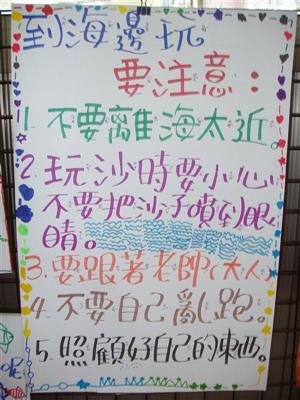 到海邊玩
要注意：
1. 不要離海太近。
2. 玩沙時要小心
不要把沙子噴到眼
睛。
3. 要跟著老師(大人)
4. 不要自己亂跑。
5. 照顧好自己的東西。